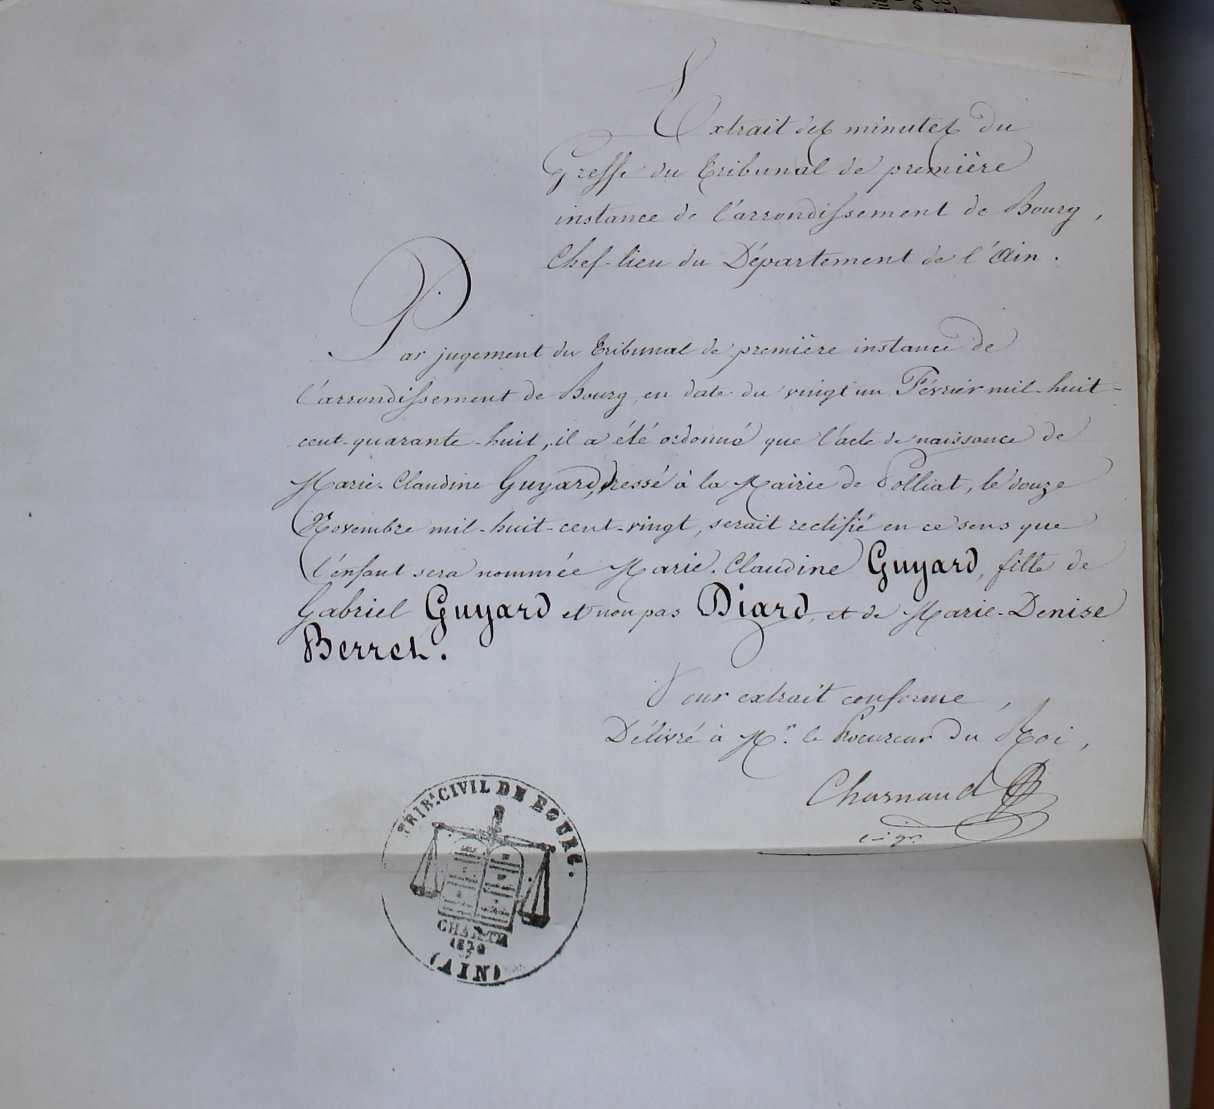 Extrait des minutes du
Greffe du Tribunal de première
instance de l'arrondissement de Bourg,
Chef-lieu du Département de l'Ain.
Par jugement du Tribunal de première instance de
l'arrondissement de Bourg, en date du vingt un Février mil-huit-
cent-quarante-huit, il a été ordonné que l'acte de naissance de
Marie-Claudine Guyard, dressé à la Mairie de Polliat, le douze
Novembre mil-huit-cent-vingt, serait rectifié en ce sens que
l'enfant sera nommée Marie-Claudine Guyard, fille de
Gabriel Guyard et non pas Diard, et de Marie-Denise
Berret.
Pour extrait conforme,
Délivré à Mr. le Procureur du Roi,
Charnaud
TRIB.L CIVIL DE BOURG.
CHARTE
1830
(AIN)